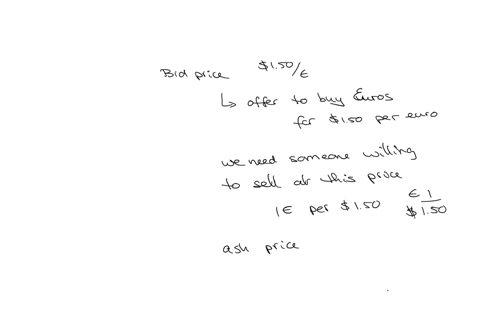 Bid price $1.50/€
↳ offer to buy Euros
for $1.50 per euro
we need someone willing
to sell at this price
1€ per $1.50 €1/$1.50
ask price